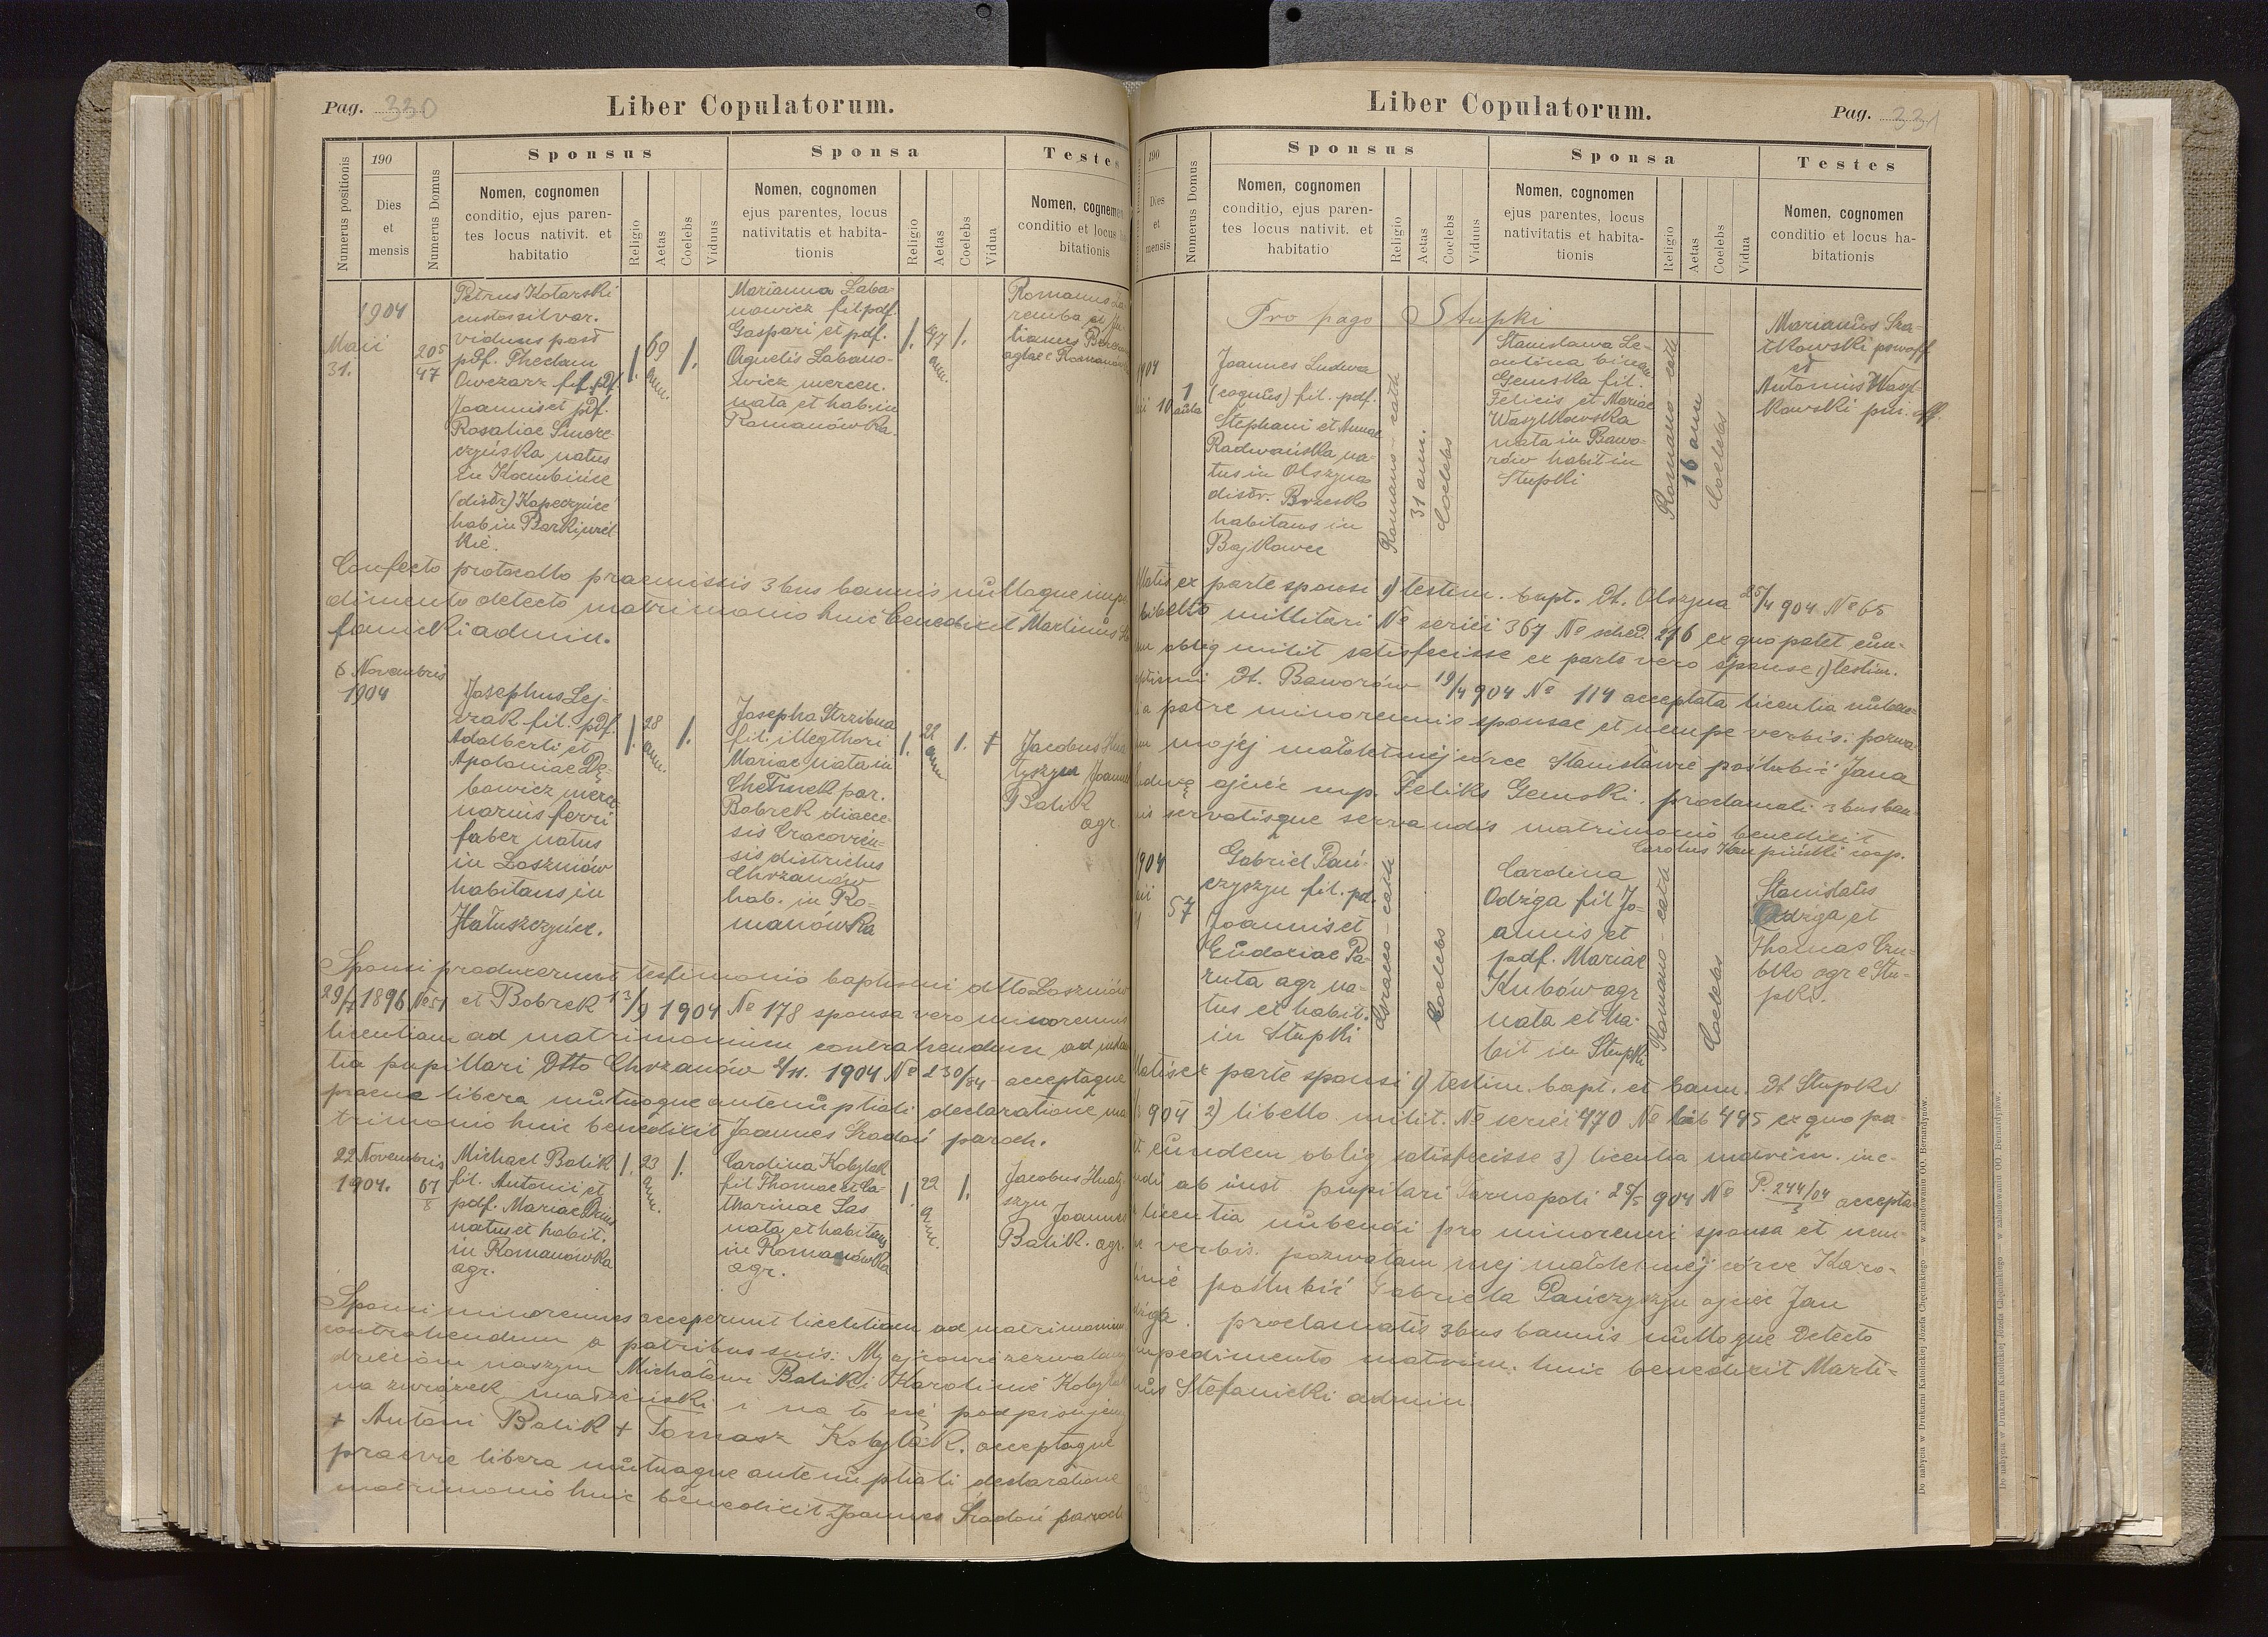 Pag. 330
Liber Copulatorum.
Numerus positionis
190
Dies
et
mensis
Numerus Domus
Sponsus
Nomen, cognomen
conditio, ejus paren-
tes locus nativit. et
habitatio
Religio
Aetas
Coelebs
Viduus
Sponsa
Nomen, cognomen
ejus parentes, locus
nativitatis et habita-
tionis
Religio
Aetas
Coelebs
Vidua
Testes
Nomen, cognomen
conditio et locus
bitationis
1904
Maii
31.
205
47
Petrus Kotarski
custos silvar.
viduus post
pdf. Theclam
Owczarz fil. pdf.
Joannis et pdf.
Rosaliae
natus
in
(distr.)
hab in
kie.
1.
69
ann.
1.
Marianna Laba-
nowicz fil pdf.
Gaspari et pdf.
Agnetis Labano-
wicz mercen.
nata et hab. in
Romanówka
1.
47
ann.
1.
Romanus
remba et
lianus
agtae e Romanowk
Confecto protocollo praemissis 3bus bannis nulloque impe
dimento detecto matrimonio huic benedixit Martinus
fanicki admin.
6 Novembris
1904
Josephus Lej-
vrak fil. pdf.
Adalberti et
Apoloniae Dę-
bowicz merce
narius ferri
faber natus
in Loszniów
habitans in
Hałuszczyńce.
1.
28
ann.
1.
Josepha Strzibna
fil. illegthori
Mariae nata in
Chełmek par.
Bobrek dioece-
sis Cracovien-
sis districtus
Chrzanów
hab. in Ro-
manówka
1.
22
ann
1.
+
Jacobus
tyszyn Joannes
Balik
agr.
Sponsi produxerunt testimonio baptismi dtto Loszniów
29/7 1896 No 51 et Bobrek 13/9 1904 No 178 sponsa vero minorennis
licentiam ad matrimonium contrahendum ad
tia pupillari Dtto Chrzanów 2/11. 1904 No 230/84 acceptaque
praevie libera mutuaque antenuptiali declaratione ma
trimonio huic benedixit Joannes Szadoń paroch.
22 Novembris
1904.
67
8
Michael Balik
fil. Antonii et
pdf. Mariae
natus et habit.
in Romanówka
agr.
1.
23
ann.
1.
Carolina Kobylak
fil Thomae et Ca-
tharinae Sas
nata et habitans
in Romanówka
agr.
1.
22
ann.
1.
Jacobus
szyn
Joannes
Balik. agr.
Sponsi minorennes acceperunt licentiam ad matrimonium
contrahendum a patribus suis: My ojcowie zezwalamy
dzieciom naszym Michałowi Balik i Karolinie Kobylak
na związek małżeński i na to się podpisujemy
+ Antoni Balik + Tomasz Kobylak. acceptaque
praevie libera mutuaque antenuptiali declaratione
matrimonio huic benedixit Joannes Szadoń paroch
Liber Copulatorum.
Pag. 331
190
Dies
et
mensis
Numerus Domus
Sponsus
Nomen, cognomen
conditio, ejus paren-
tes locus nativit. et
habitatio
Religio
Aetas
Coelebs
Viduus
Sponsa
Nomen, cognomen
ejus parentes, locus
nativitatis et habita-
tionis
Religio
Aetas
Coelebs
Vidua
Testes
Nomen, cognomen
conditio et locus ha-
bitationis
Pro pago Stupki
1904
10
1
aula
Joannes Ludwa
(coquus) fil. pdf.
Stephani et Annae
Radwańska na-
tus in Olszyna
distr. Brzesko
habitans in
Bajkowce
Romano-cath
31 ann.
Coelebs
Stanislawa Le-
ontina binom
Gemska fil.
Felicis et Mariae
Waszkowska
nata in Bawo-
rów habit in
Stupki
Romano-cath
16 ann
Coelebs
Marianus
et
Antonius
kowski
ex parte sponsi 1) testim. bapt. Dt. Olszyna 25/4 904 No 65
libello militari No seriei 367 No sched. 276 ex quo patet eun-
oblig milit satisfecisse ex parte vero sponsae 1) testim.
Dt. Baworów 19/4 904 No 114 acceptata licentia
a patre minorennis sponsae et nempe verbis: pozwa-
mojej małoletniej córce Stanisławie poślubić Jana
ojciec mp. Feliks Gemski. proclamatis 3bus ban-
servatisque servandis matrimonio benedixit
Carolus Krupiński coop.
1904
57
Gabriel Pań-
czyszyn fil. pd.
Joannis et
Eudoxiae Pa-
ruta agr na-
tus et habit.
in Stupki
Graeco-cath
Coelebs
Carolina
Odżga fil Jo-
annis et
pdf. Mariae
Kubów agr
nata et ha-
bit in Stupki
Romano-cath
Coelebs
Stanislaus
Odżga et
Thomas
agr e Stu-
pki.
ex parte sponsi 1) testim. bapt. et bann. Dt Stupki
904 2) libello milit. No seriei 470 No lib 445 ex quo pa-
eundem oblig satisfecisse 3) licentia matrim. ine-
ab inst pupilari Tarnopoli 25/5 904 No P. 244/04 accepta
licentia nubendi pro minorenni sponsa et nem-
verbis. pozwalam mej małoletniej córce Karo-
linie poślubić Gabriela Pańczyszyn ojciec Jan
proclamatis 3bus bannis nulloque detecto
impedimento matrim. huic benedixit Marti-
nus Stefanicki admin.
Do nabycia w Drukarni Katolickiej Józefa Chęcińskiego — w zabudowaniu OO. Bernardynów.
Do nabycia w Drukarni Katolickiej Józefa Chęcińskiego — w zabudowaniu OO. Bernardynów.